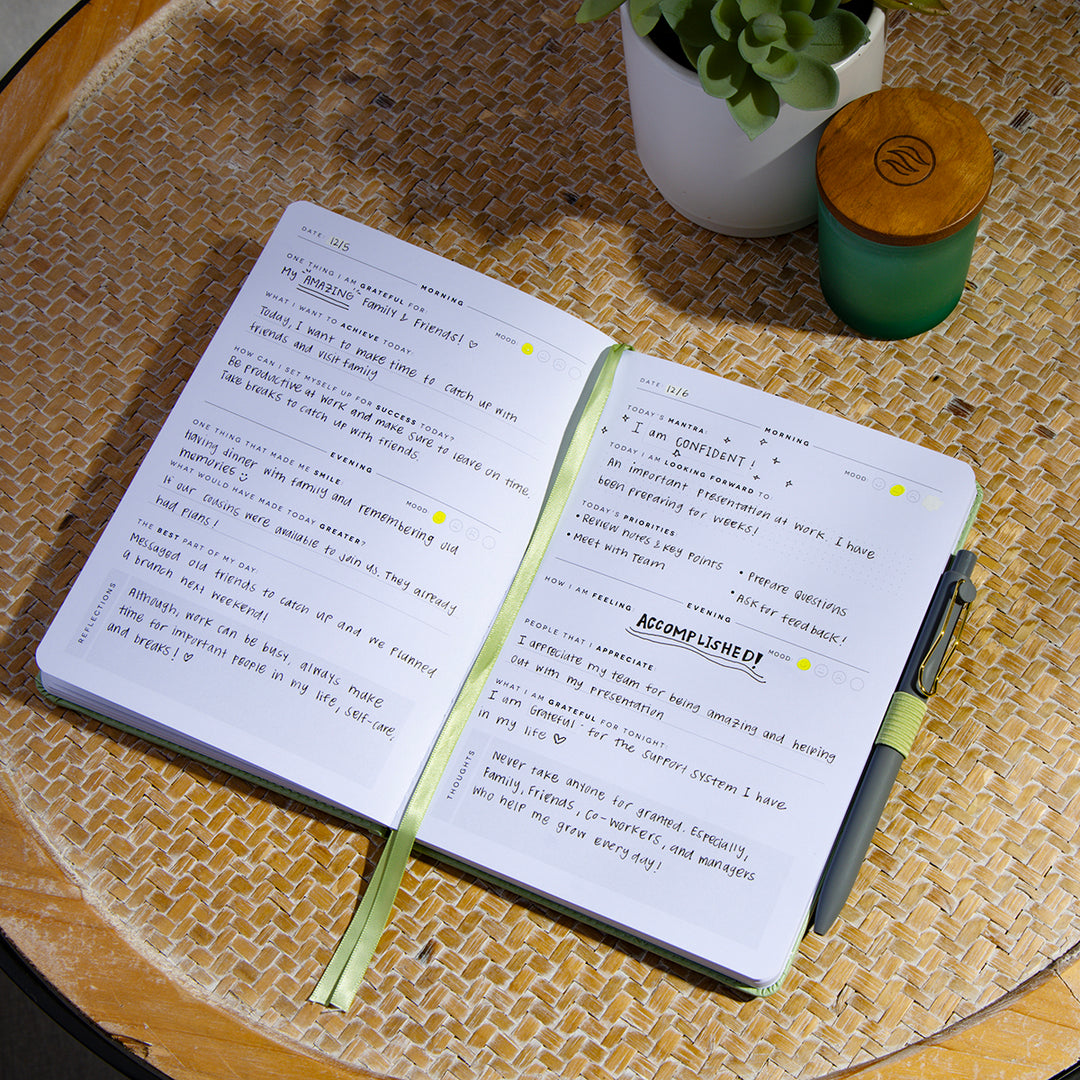 DATE: 12/5
MORNING
ONE THING I AM GRATEFUL FOR:
MOOD:
My AMAZING Family & Friends! ♡
WHAT I WANT TO ACHIEVE TODAY:
Today, I want to make time to catch up with
friends and visit family
HOW CAN I SET MYSELF UP FOR SUCCESS TODAY?
Be productive at work and make sure to leave on time.
Take breaks to catch up with friends.
EVENING
ONE THING THAT MADE ME SMILE
MOOD
Having dinner with family and remembering old
memories ☺
WHAT WOULD HAVE MADE TODAY GREATER?
If our cousins were available to join us. They already
had plans!
THE BEST PART OF MY DAY:
Messaged old friends to catch up and we planned
a brunch next weekend!
REFLECTIONS
Although, work can be busy, always make
time for important people in my life, self-care,
and breaks! ♡
DATE: 12/6
MORNING
TODAY'S MANTRA:
MOOD:
I am CONFIDENT!
TODAY I AM LOOKING FORWARD TO:
An important presentation at work. I have
been preparing for weeks!
TODAY'S PRIORITIES
• Review notes & Key Points
• Meet with Team
• Prepare Questions
• Ask for feedback!
EVENING
HOW I AM FEELING:
MOOD
ACCOMPLISHED!
PEOPLE THAT I APPRECIATE
I appreciate my team for being amazing and helping
out with my presentation
WHAT I AM GRATEFUL FOR TONIGHT:
I am Grateful for the support system I have
in my life ♡
THOUGHTS
Never take anyone for granted. Especially,
Family, Friends, Co-workers, and managers
who help me grow every day!